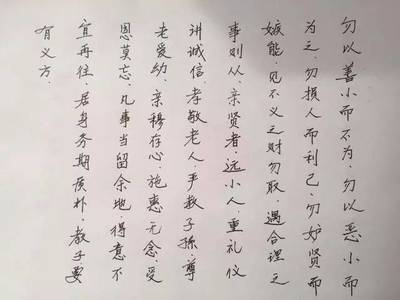 勿以善小而不为·勿以恶小而
为之·勿损人而利己·勿妒贤而
嫉能·见不义之财勿取·遇合理之
事则从·亲贤者·远小人·重礼仪
讲诚信·孝敬老人·严教子孙·尊
老爱幼·亲穆存心·施惠无念·受
恩莫忘·凡事当留余地·得意不
宜再往·居身务期质朴·教子要
有义方·